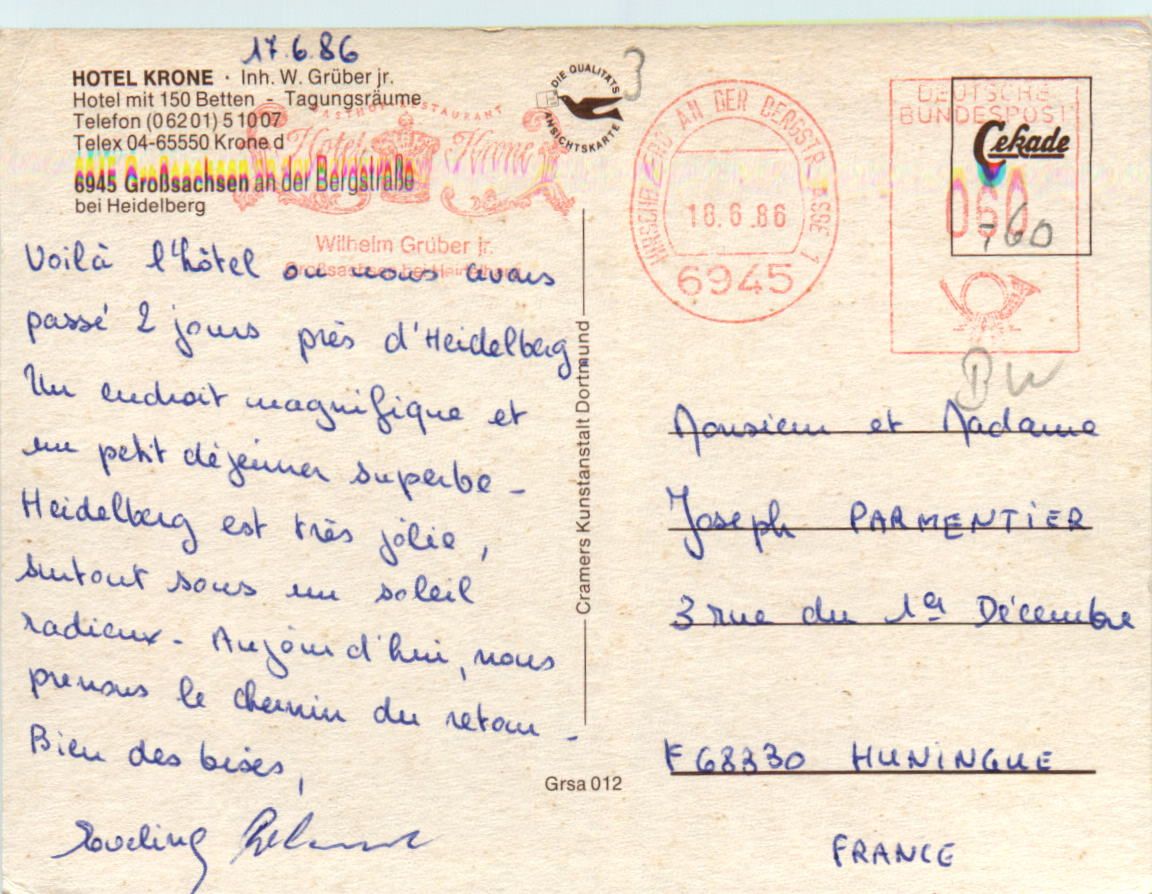 17.6.86
HOTEL KRONE · Inh. W. Grüber jr.
Hotel mit 150 Betten - Tagungsräume
Telefon (06201) 51007
Telex 04-65550 Krone d
6945 Großsachsen an der Bergstraße
bei Heidelberg
GASTHOF RESTAURANT
Hotel Krone
Wilhelm Grüber jr.
Grossachsen bei Heidelberg
DIE QUALITÄTS
ANSICHTSKARTE
3
HIRSCHBERG AN DER BERGSTRASSE 1
18.6.86
6945
DEUTSCHE
BUNDESPOST
Cekade
060
60
Voilà l'hôtel ou nous avons
passé 2 jours près d'Heidelberg
Un endroit magnifique et
un petit déjeuner superbe -
Heidelberg est très jolie,
surtout sous un soleil
radieux - Aujourd'hui, nous
prenons le chemin du retour -
Bien des bises,
Cramers Kunstanstalt Dortmund
Grsa 012
Monsieur et Madame
Joseph PARMENTIER
3 rue du 1er Décembre
F 68330 HUNINGUE
FRANCE